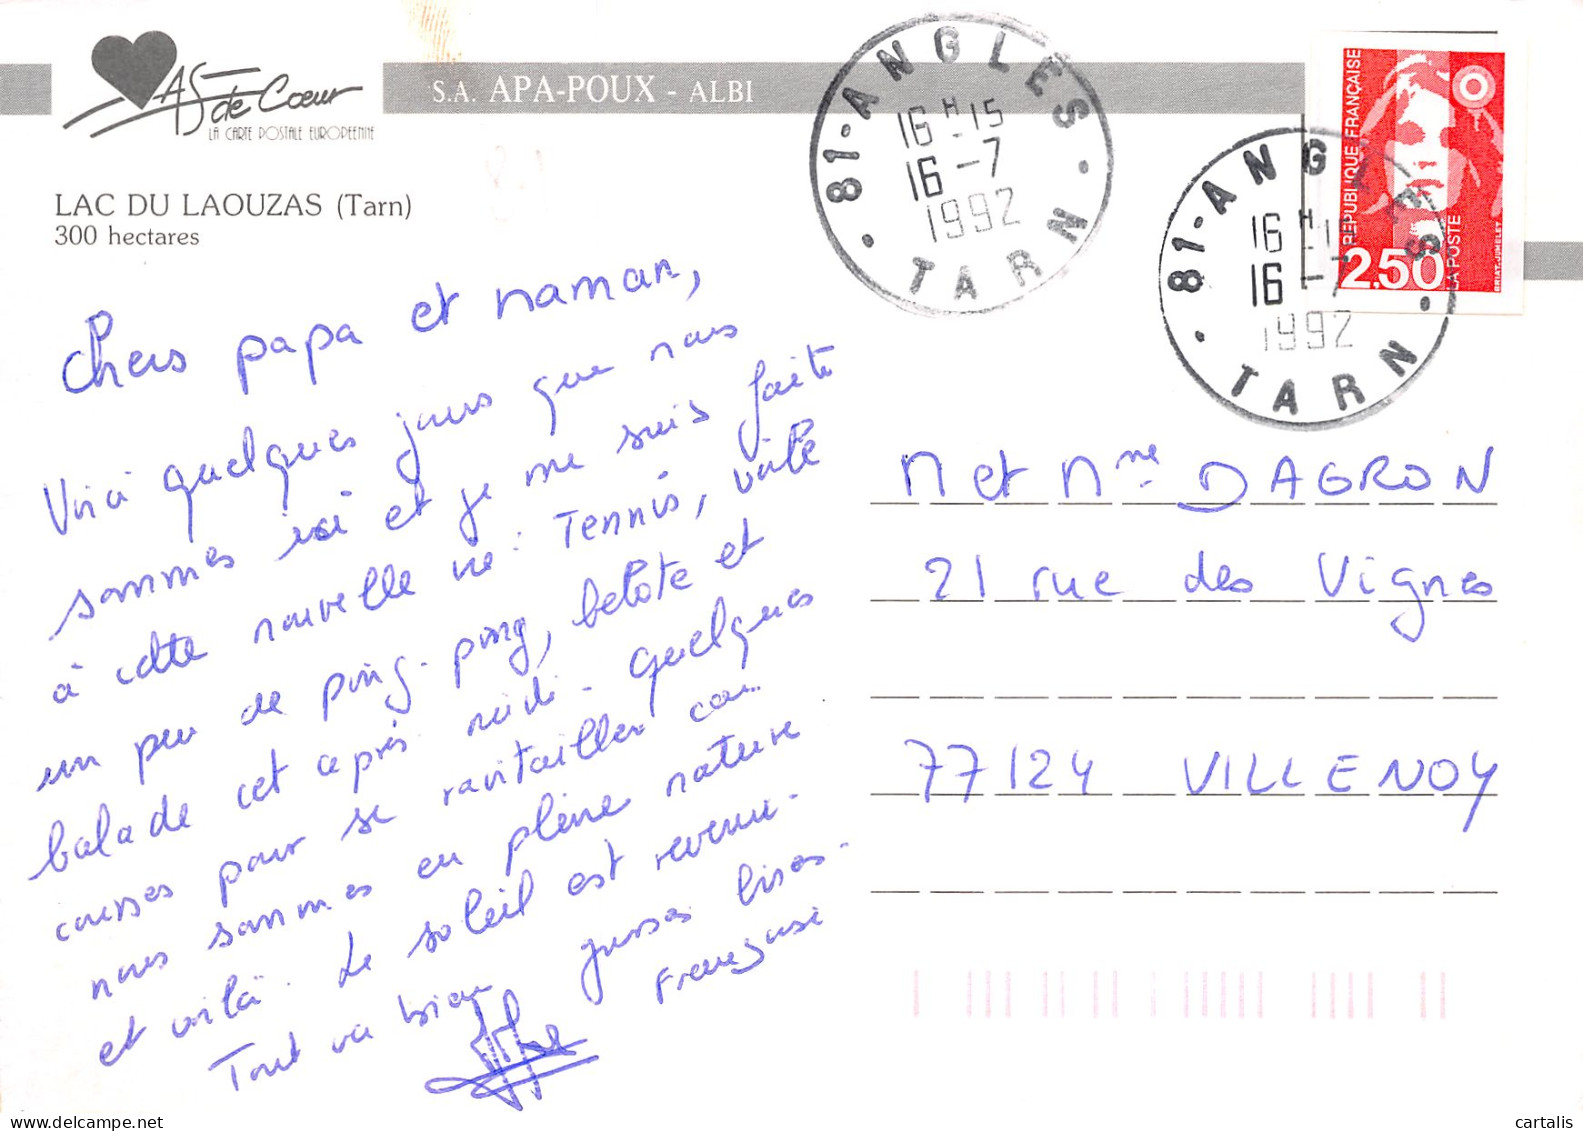 AS de Cœur
LA CARTE POSTALE EUROPEENNE
S.A. APA-POUX - ALBI
LAC DU LAOUZAS (Tarn)
300 hectares
81-ANGLES
16 H 15
16 -7
1992
TARN
81-ANGLES
16 H 15
16 -7
1992
TARN
REPUBLIQUE FRANÇAISE
2,50
LA POSTE
BRIAT-JUMELET
Chers papa et maman,
Voici quelques jours que nous
sommes ici et je me suis faite
à cette nouvelle vie : Tennis, voile
un peu de ping-pong, belote et
balade cet après midi - quelques
courses pour se ravitailler car
nous sommes en pleine nature
et voilà. Le soleil est revenu.
Tout va bien grosses bises.
Françoise
M et Mme DAGRON
21 rue des Vignes
77124 VILLENOY
www.delcampe.net
cartalis